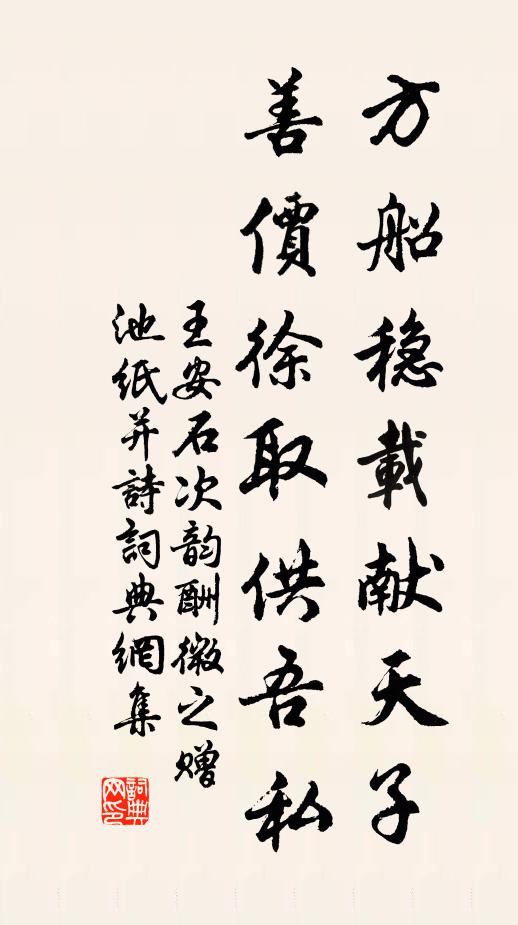 方船稳載献天子
善價徐取供吾私
王安石次韵酬微之赠
池纸并詩詞典網集
詞典网印